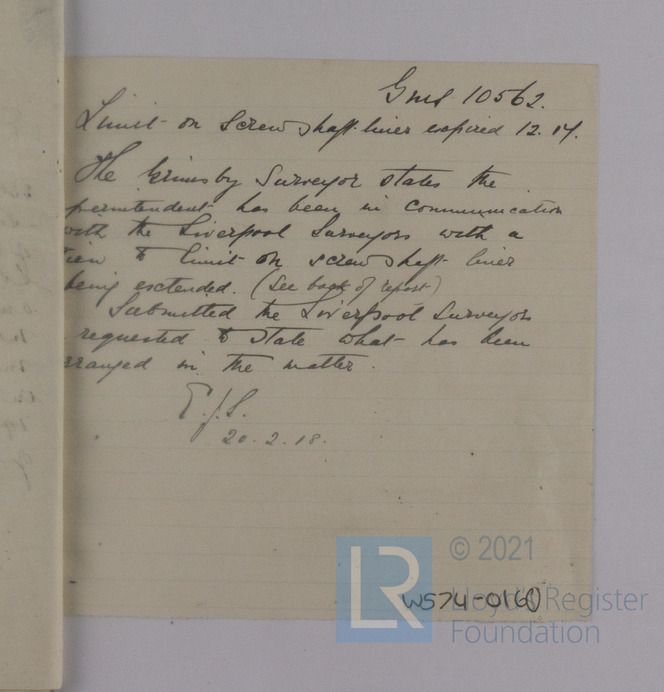 Gms 10562.
Limit on Screw shaft liner expired 12.17.
The Grimsby Surveyor states the
perintendent has been in communication
with the Liverpool Surveyors with a
view to limit on screw shaft liner
being extended. (See back of report)
Submitted the Liverpool Surveyors
requested to state what has been
rranged in the matter.
E.J.S.
20.2.18.
© 2021
LR
Lloyd's Register
Foundation
W574-0160